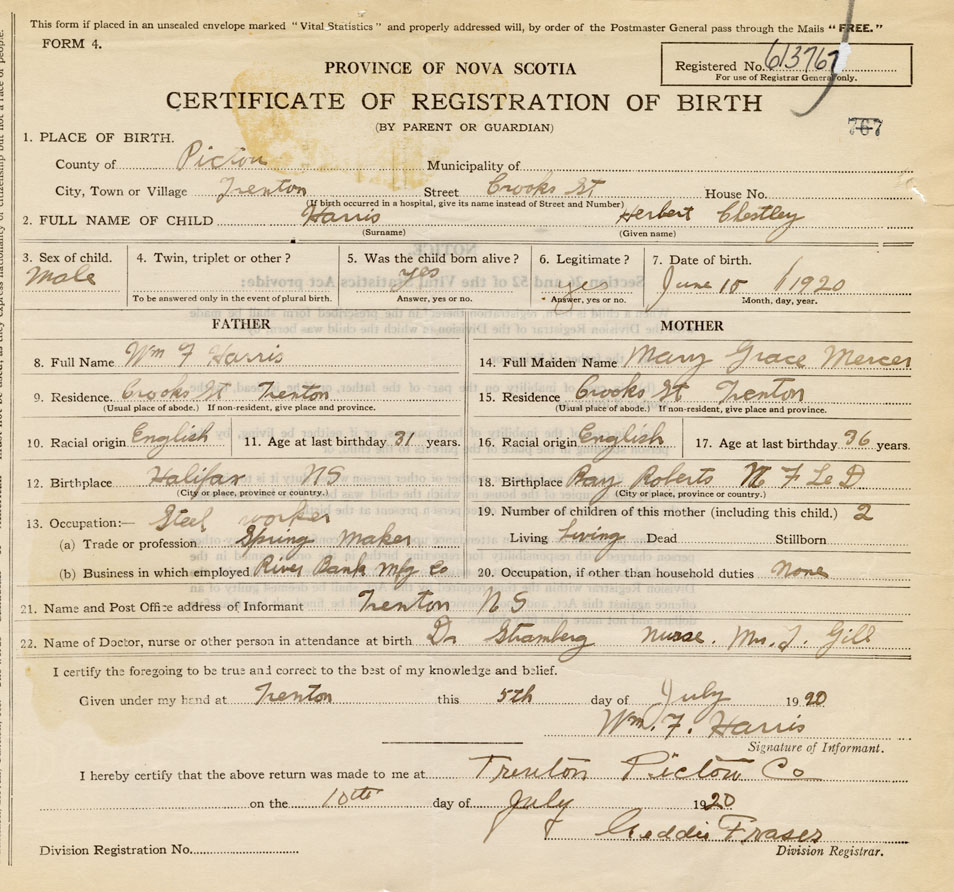 This form if placed in an unsealed envelope marked "Vital Statistics" and properly addressed will, by order of the Postmaster General pass through the Mails "FREE."
FORM 4.
Registered No. 613767
For use of Registrar General only.
PROVINCE OF NOVA SCOTIA
CERTIFICATE OF REGISTRATION OF BIRTH
(BY PARENT OR GUARDIAN)
767
1. PLACE OF BIRTH.
County of Pictou Municipality of
City, Town or Village Trenton Street Crooks St House No.
(If birth occurred in a hospital, give its name instead of Street and Number)
2. FULL NAME OF CHILD Harris Herbert Chestley
(Surname) (Given name)
3. Sex of child. 4. Twin, triplet or other? 5. Was the child born alive? 6. Legitimate? 7. Date of birth.
Male yes yes June 15 1920
To be answered only in the event of plural birth. Answer, yes or no. Answer, yes or no. Month, day, year.
FATHER MOTHER
8. Full Name Wm F Harris 14. Full Maiden Name Mary Grace Mercer
9. Residence. Crooks St Trenton 15. Residence Crooks St Trenton
(Usual place of abode.) If non-resident, give place and province. (Usual place of abode.) If non-resident, give place and province.
10. Racial origin English 11. Age at last birthday 31 years. 16. Racial origin English 17. Age at last birthday 36 years.
12. Birthplace Halifax NS 18. Birthplace Bay Roberts N F Le D
(City or place, province or country.) (City or place, province or country.)
13. Occupation:— Steel worker 19. Number of children of this mother (including this child.) 2
(a) Trade or profession Spring Maker Living Living Dead Stillborn
(b) Business in which employed River Bank Mfg Co 20. Occupation, if other than household duties None
21. Name and Post Office address of Informant Trenton NS
22. Name of Doctor, nurse or other person in attendance at birth Dr Stramberg Nurse. Mrs. J. Gill
I certify the foregoing to be true and correct to the best of my knowledge and belief.
Given under my hand at Trenton this 5th day of July 1920
Wm. F. Harris
Signature of Informant.
I hereby certify that the above return was made to me at Trenton Pictou Co
on the 10th day of July 1920
Geddie Fraser
Division Registration No. Division Registrar.